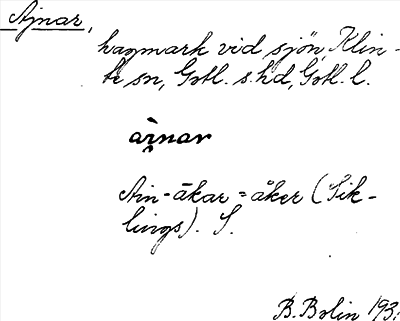 Ajnar,
hagmark vid sjön, Klin-
te sn, Gotl. s. hd, Gotl. l.
ai̯nar
Ain-åkar = åker (Sik-
lings). S.
B. Bolin 193